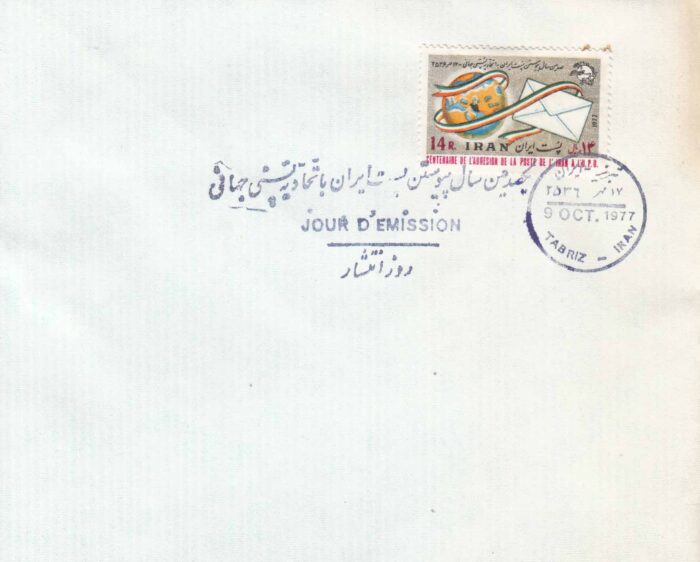 صدمین سال پیوستن پست ایران باتحادیه پستی جهانی
1977
14 R. IRAN پست ایران ۱۴ ریال
CENTENAIRE DE L'ADHESION DE LA POSTE DE L'IRAN A L'U.P.U.
یکصدمین سال پیوستن پست ایران باتحادیه پستی جهانی
JOUR D'EMISSION
روز انتشار
تبریز - ایران
۱۷ مهر
۲۵۳۶
9 OCT. 1977
TABRIZ - IRAN